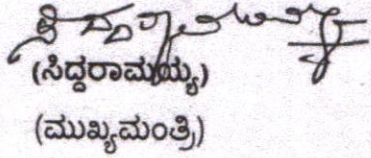 (ಸಿದ್ದರಾಮಯ್ಯ)
(ಮುಖ್ಯಮಂತ್ರಿ)